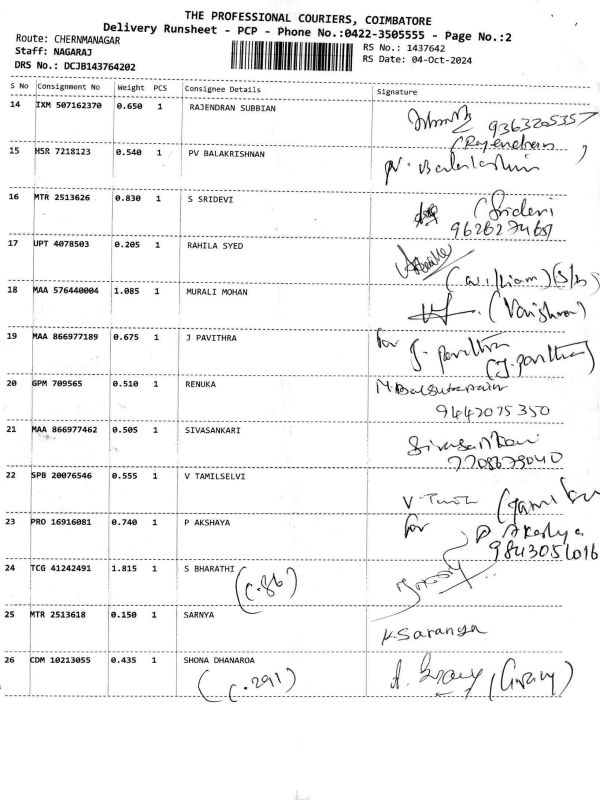 THE PROFESSIONAL COURIERS, COIMBATORE
Delivery Runsheet - PCP - Phone No.:0422-3505555 - Page No.:2
Route: CHERNMANAGAR
Staff: NAGARAJ
DRS No.: DCJB143764202
RS No.: 1437642
RS Date: 04-Oct-2024
S No Consignment No Weight PCS Consignee Details Signature
14 IXM 507162370 0.650 1 RAJENDRAN SUBBIAN 9363205357
(Rajendran
15 HSR 7218123 0.540 1 PV BALAKRISHNAN
16 MTR 2513626 0.830 1 S SRIDEVI (Sridevi
17 UPT 4078503 0.205 1 RAHILA SYED
18 MAA 576440004 1.085 1 MURALI MOHAN
19 MAA 866977189 0.675 1 J PAVITHRA for J. pavithra
(J. pavithra)
20 GPM 709565 0.510 1 RENUKA
9442075350
21 MAA 866977462 0.505 1 SIVASANKARI Sivasankari
7708679040
22 SPB 20076546 0.555 1 V TAMILSELVI
23 PRO 16916081 0.740 1 P AKSHAYA for P Akshya
9843051016
24 TCG 41242491 1.815 1 S BHARATHI
(C.86)
25 MTR 2513618 0.150 1 SARNYA K. Saranya
26 CDM 10213055 0.435 1 SHONA DHANAROA
(C.291)